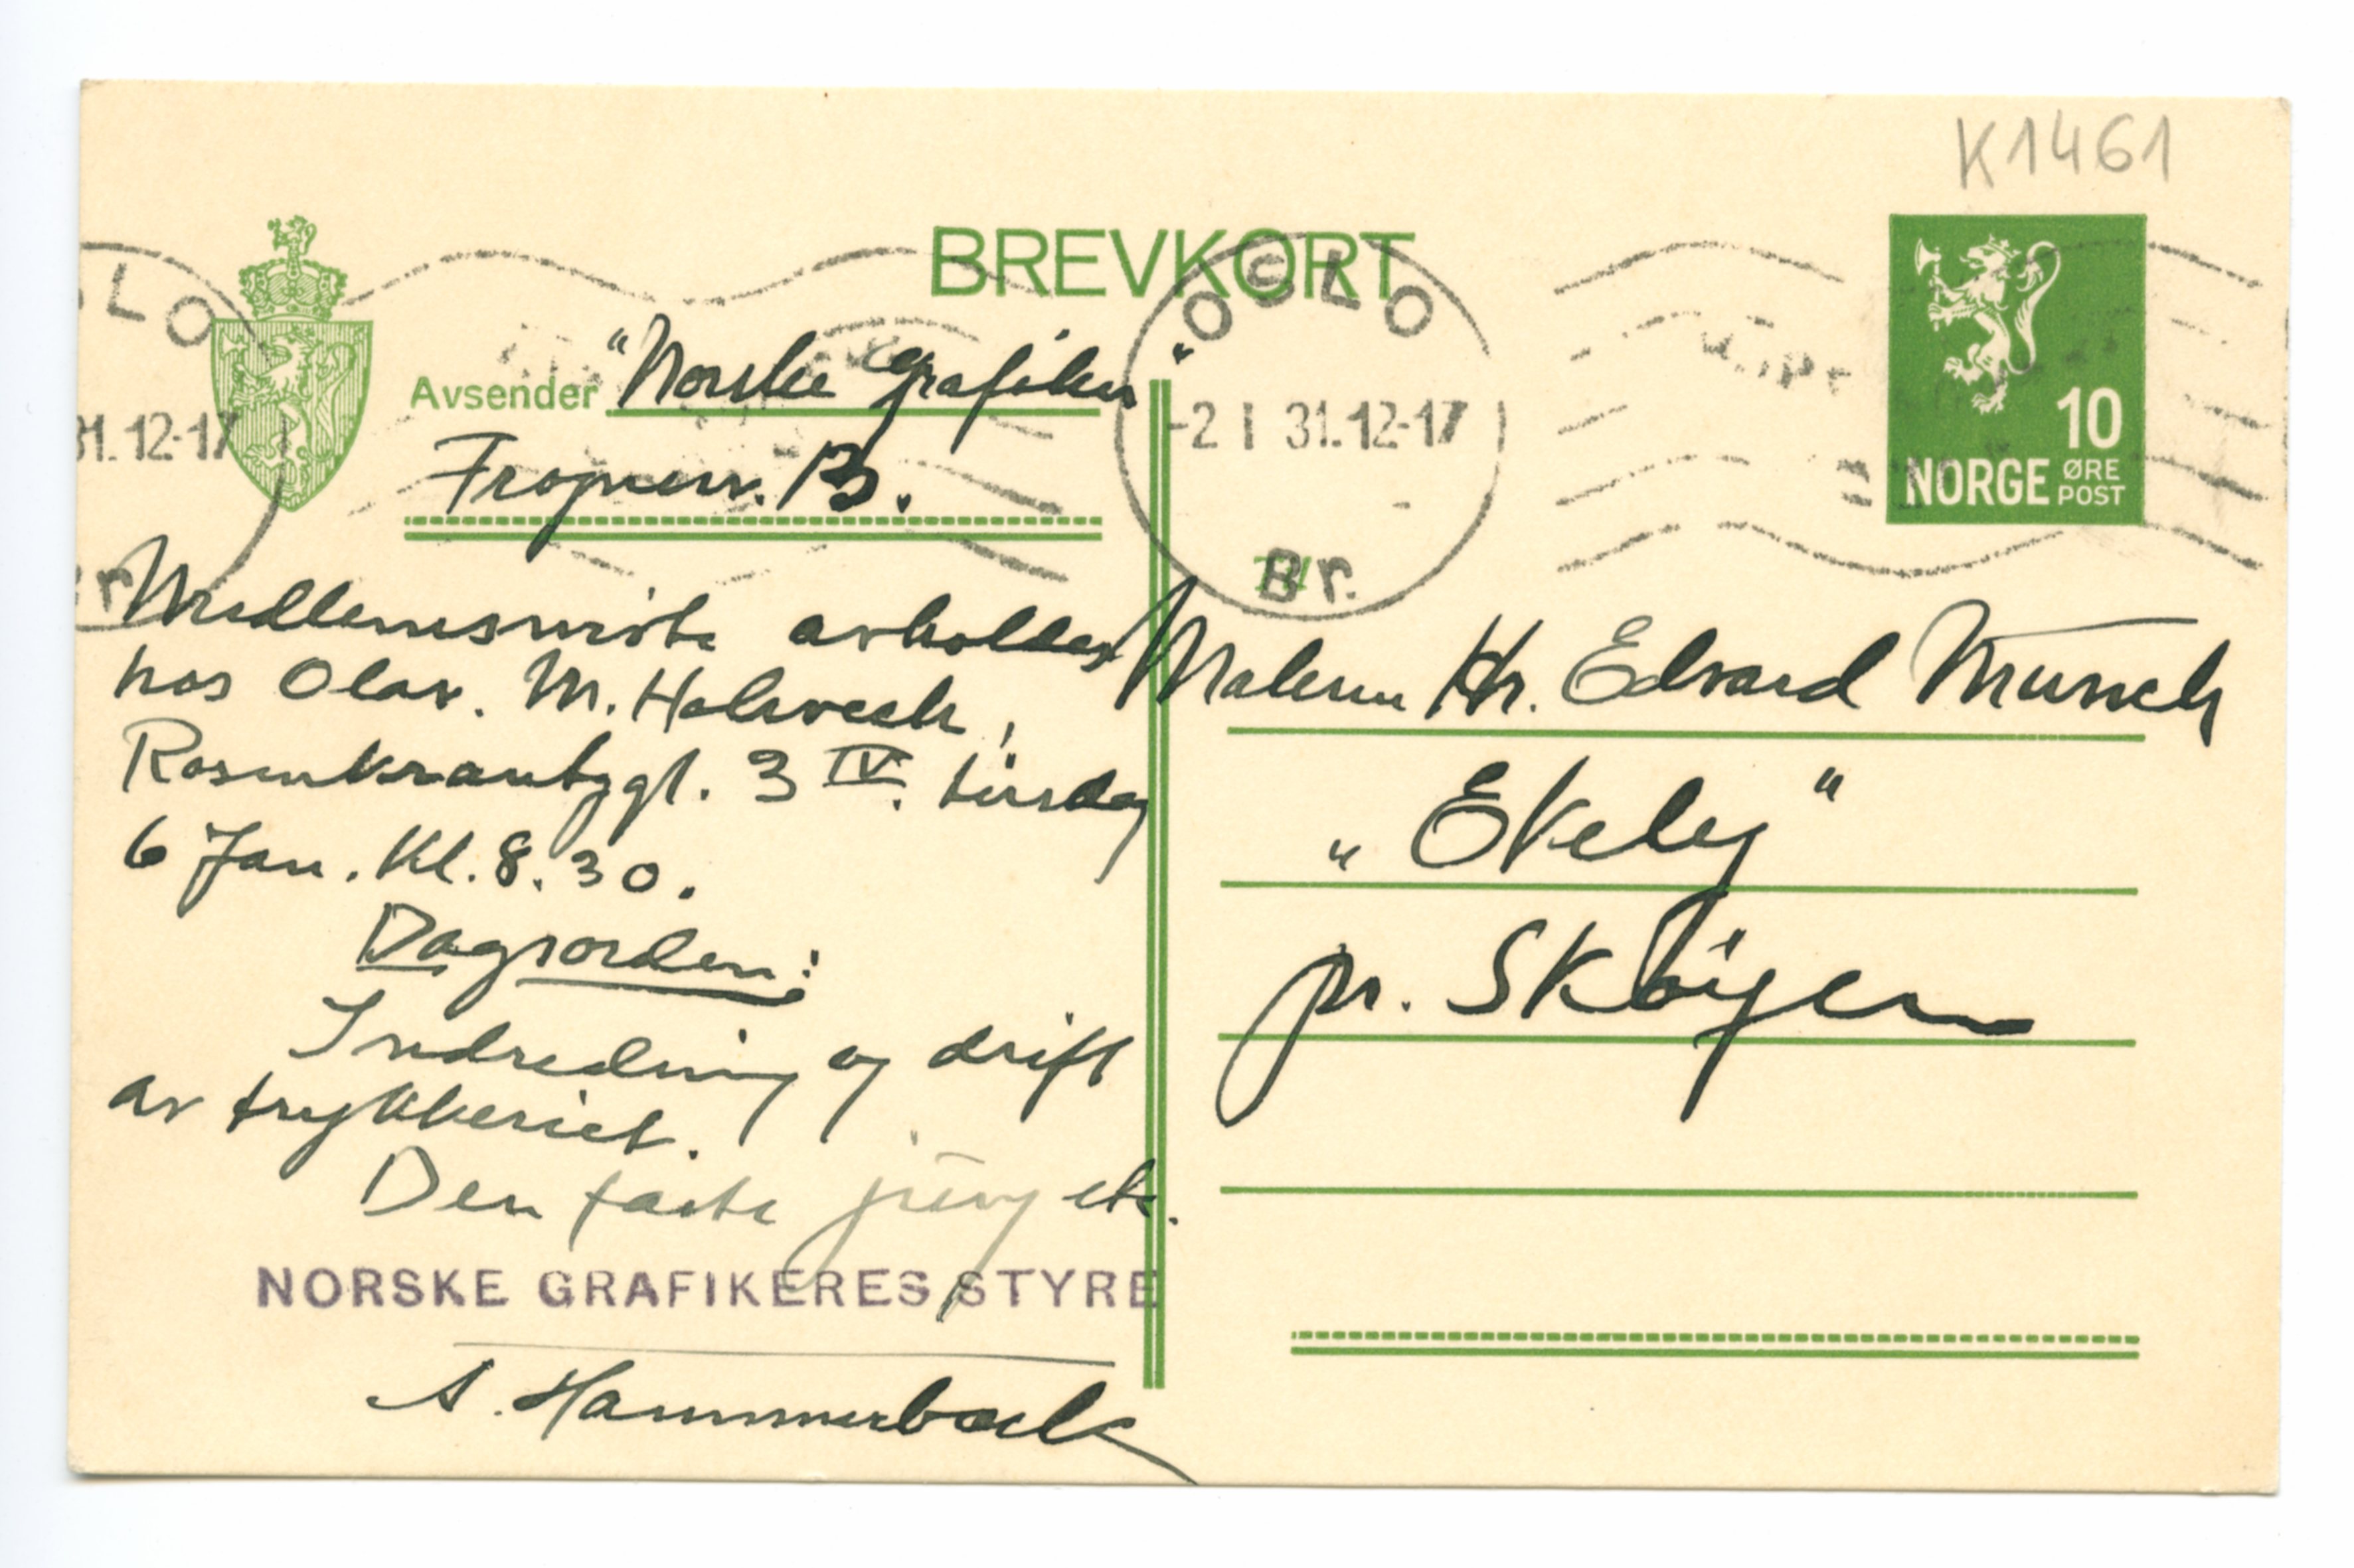 K1461
BREVKORT
OSLO
-2 I 31.12-17
Br.
LO
31.12-17
r
10
NORGE ØRE
POST
Avsender "Norske Grafikere"
Frognerv. 13.
Medlemsmöte avholdes
hos Olav. M. Holwech,
Rosenkrantzgt. 3 IV. tirsdag
6 Jan. Kl. 8.30.
Dagsorden:
Indredning og drift
av trykkeriet.
Den faste jury etc.
NORSKE GRAFIKERES STYRE
A. Hammerbeck
Maleren Hr. Edvard Munch
"Ekely"
pr. Sköyen